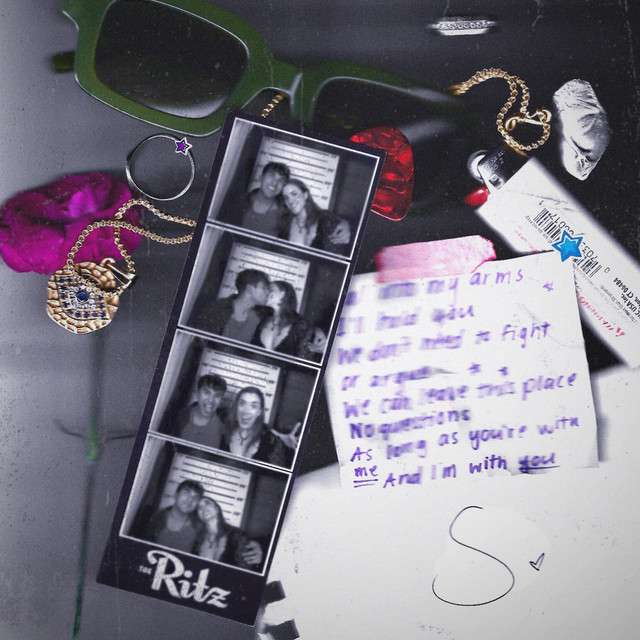 my arms
I'll hold you
We don't need to fight
or argue
We can leave this place
No questions
As long as you're with
me And I'm with you
S
THE
Ritz